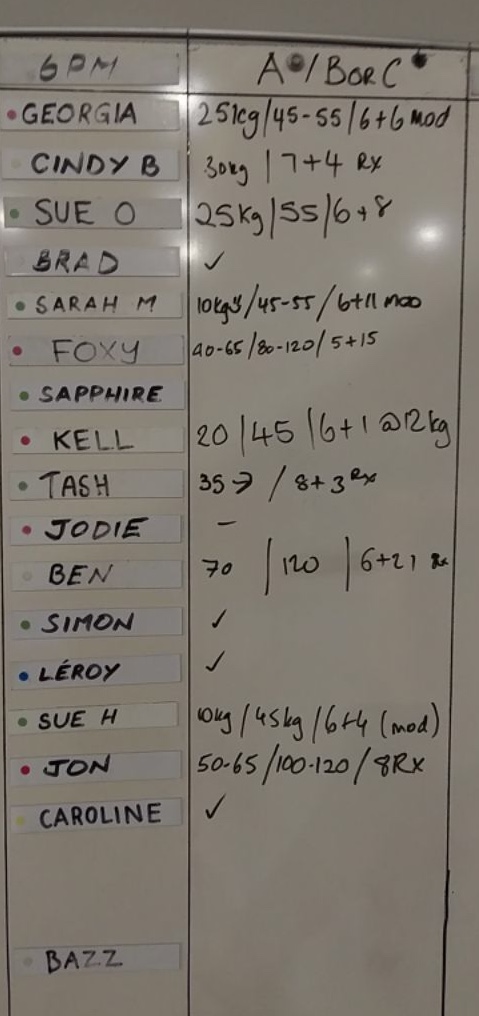 6PM A / B OR C
GEORGIA 25kg/45-55/6+6 mod
CINDY B 30kg | 7+4 Rx
SUE O 25kg/55/6+8
BRAD ✓
SARAH M 10kgs/45-55/6+11 mod
FOXY 40-65/80-120/5+15
SAPPHIRE
KELL 20/45/6+1 @12kg
TASH 35→ / 8+3 Rx
JODIE –
BEN 70 / 120 / 6+21 Rx
SIMON ✓
LÉROY ✓
SUE H 10kg/45kg/6+4 (mod)
JON 50-65/100-120/8RX
CAROLINE ✓
BAZZ